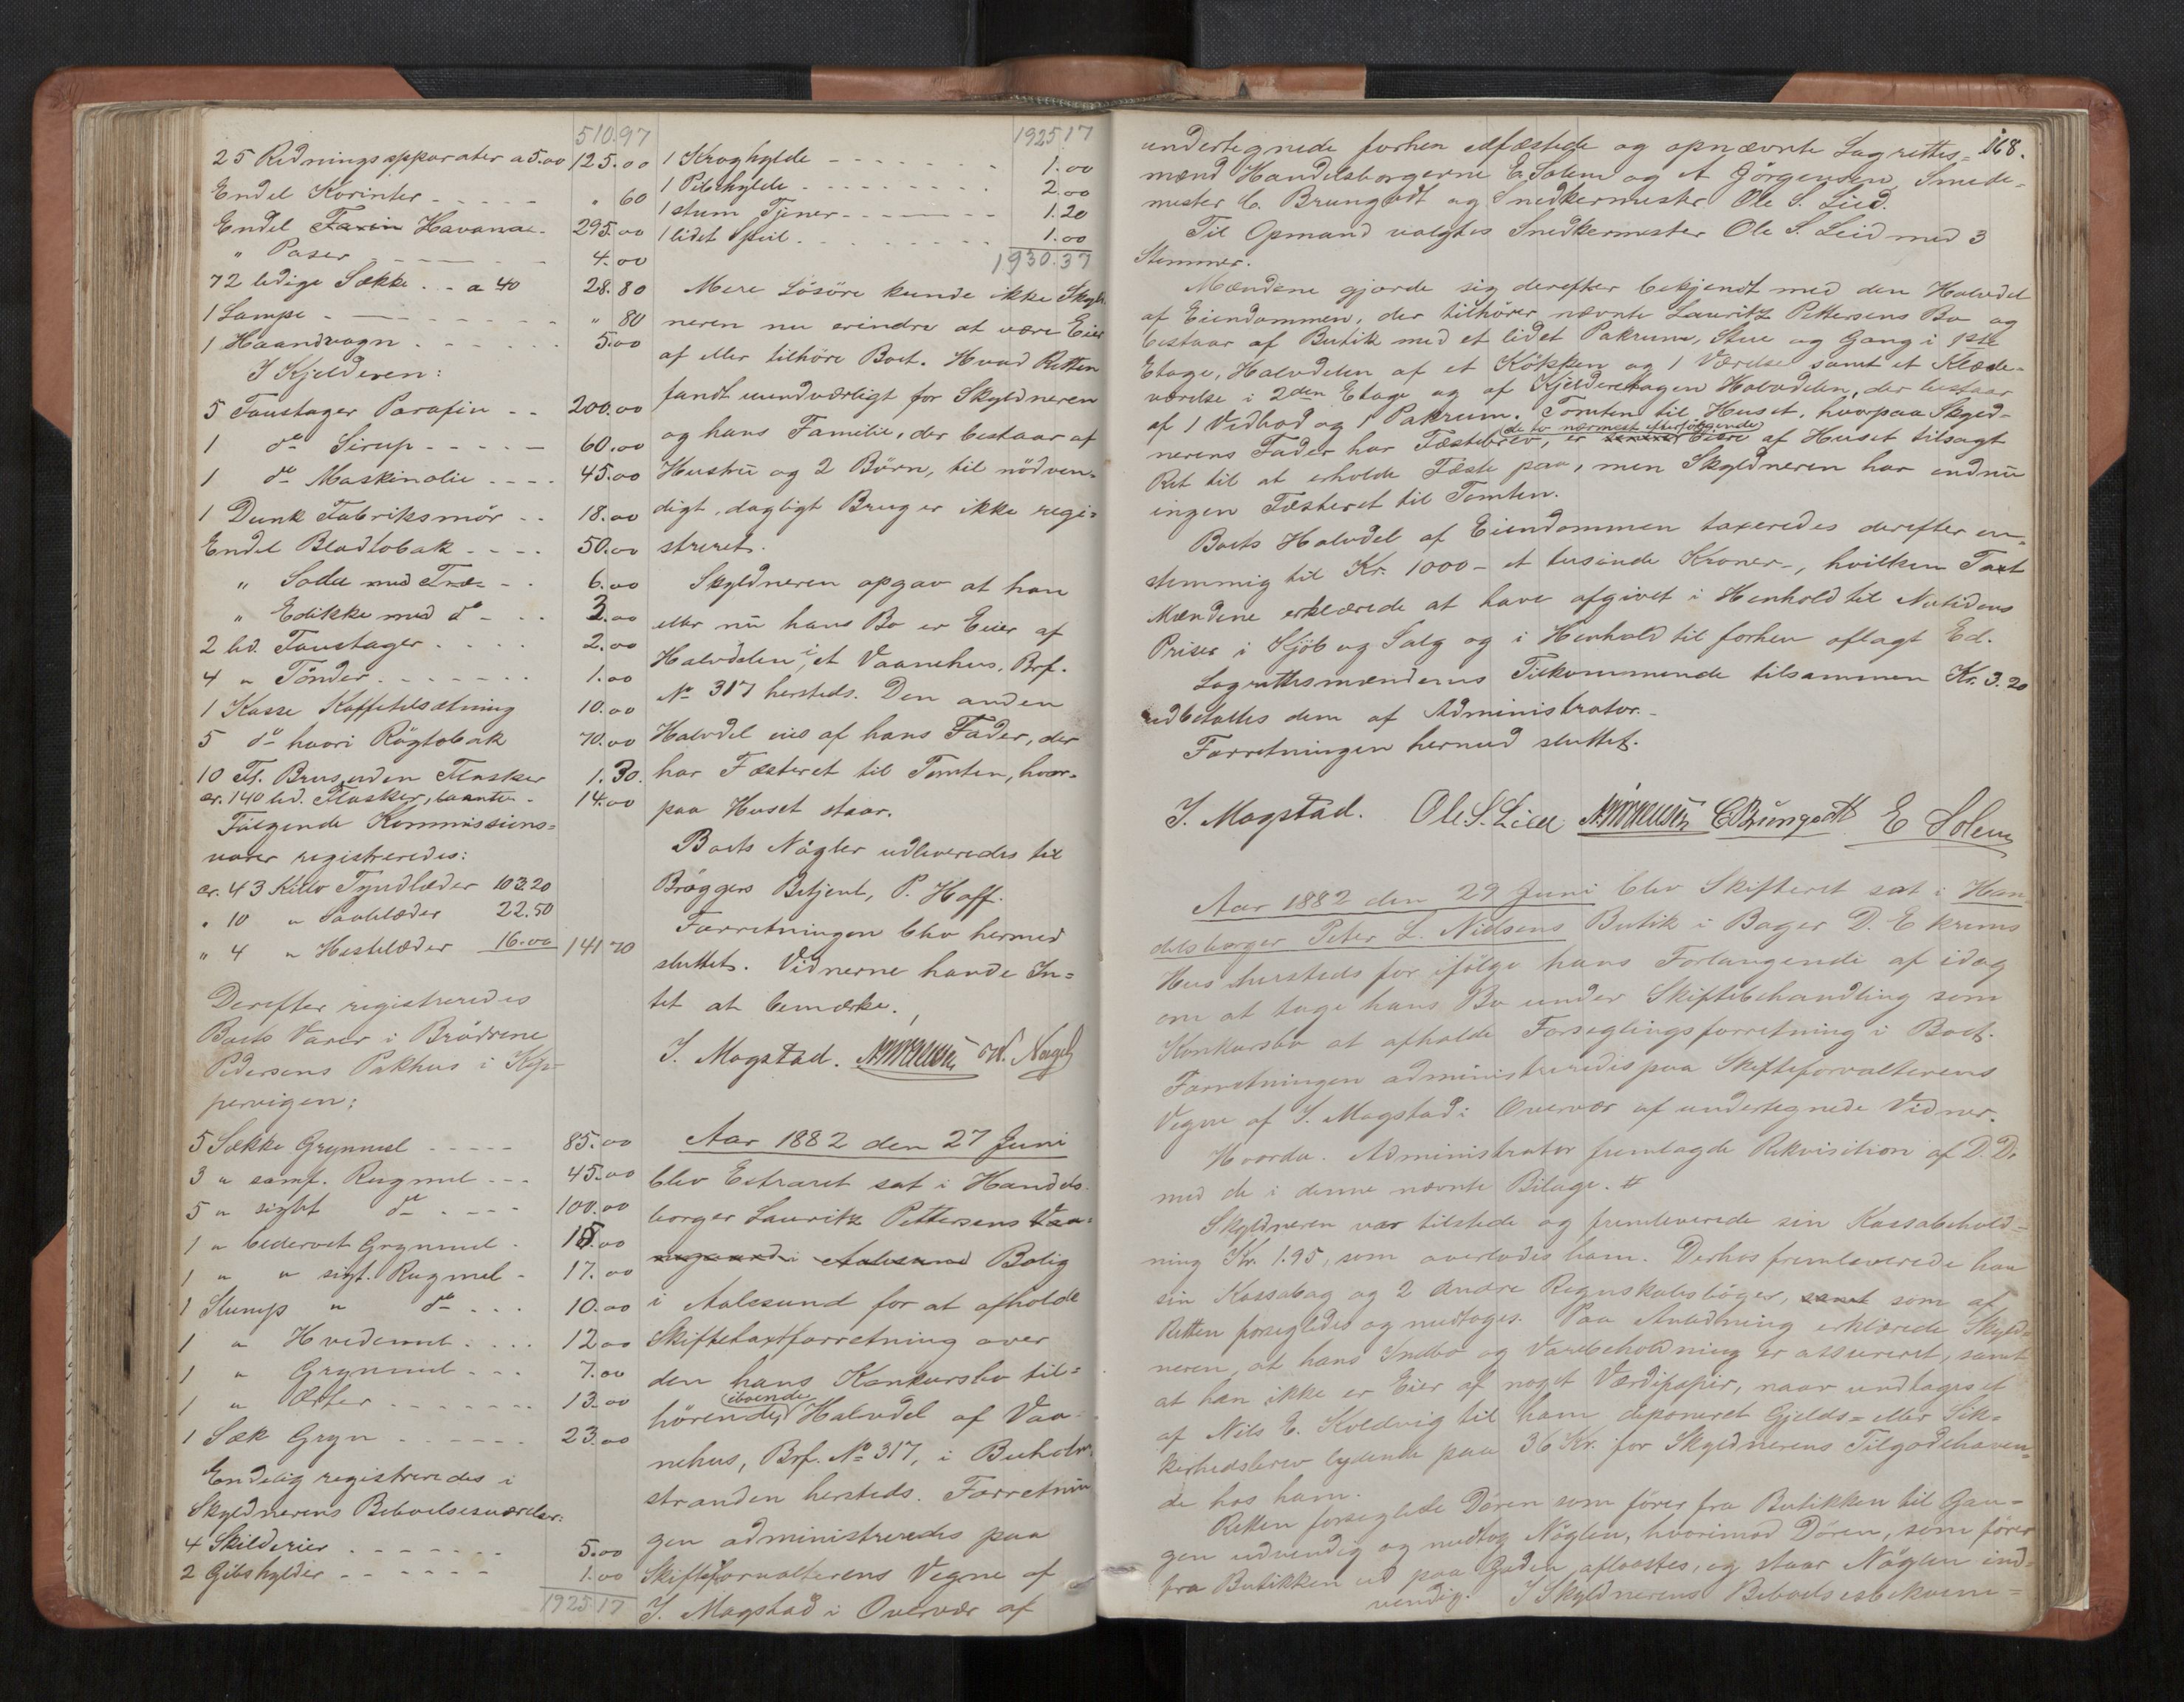 510.97
25 Redningsapparater a 5.00 125.00
Endel Korinter - - - - - " 60
Endel Faxin Havanae - 295.00
" Poser - - - - - 4.00
72 ledige Sække - - a 40 28.80
1 Lampe - - - - - - " 80
1 Haandvogn - - - - - 5.00
I Kjelderen:
5 Faustager Parafin - - 200.00
1 do Sirup - - - - - 60.00
1 do Maskinolie - - - - 45.00
1 Dunk Fabriksmör - - 18.00
Endel Bladtobak - - - - 50.00
" Soda med Træ - - 6.00
" Edikke med do - - - 3.00
2 led. Faustager - - - - 2.00
4 " Tönder - - - - - - 1.00
1 Kasse Kaffetilsætning 10.00
5 do hvori Rögtobak 70.00
10 Fl. Brus uden Flasker 1.30.
cr. 140 led. Flasker, 14.00
Fölgende Kommissions=
varer registreredes:
cr. 43 Kilo Tyndlæder 103.20
" 10 " Saalelæder 22.50
" 4 " Hestelæder 16.00 141 70
Derefter registreredes
Boets Varer i Brödrene
Pedersens Pakhus i Kip-
pervigen:
5 Sække Grynmel - - - - - 85.00
3 " samf. Rugmel - - - 45.00
5 " sigtet do - - - - 100.00
1 " bedervet Grynmel - 15.00
1 " " sigt. Rugmel - 17.00
1 Slump " do - - - 10.00
1 " Hvedemel - - - - 12.00
1 " Grynmel - - - 7.00
1 " Ærter - - - - - - - 13.00
1 Sæk Gryn - - - - - - 23.00
Endelig registreredes i
Skyldnerens Beboelsesværelser:
4 Skilderier - - - - - - 5.00
2 Gibshylder - - - - - - 1.00
1925 17
1925 17
1 Kroghylde - - - - - - - 1.00
1 Pibehylde - - - - - - - - 2.00
1 stum Tjener - - - - - - - 1.20
1 lidet Speil - - - - - - - - 1.00
1930.37
Mere Lösöre kunde ikke Skyld-
neren nu erindre at være Eier
af eller tilhöre Boet. Hvad Retten
fandt uundværligt for Skyldneren
og hans Familie, der bestaar af
Hustru og 2 Börn, til nödven-
digt, dagligt Brug er ikke regi=
streret.
Skyldneren opgav at han
eller nu hans Bo er Eier af
Halvdelen i et Vaanehus, Brf.
No 317 hersteds. Den anden
Halvdel eies af hans Fader, der
har Fæsteret til Tomten, hvor-
paa Huset staar.
Boets Nögler udleveredes til
Bröggers Betjent, P. Hoff.
Forretningen blev hermed
sluttet. Vidnerne havde In=
tet at bemærke.
J. Mogstad. W. Nagel
Aar 1882 den 27 Juni
blev Extraret sat i Handels-
borger Lauritz Pettersens Vaa-
i Aalesund Bolig
i Aalesund for at afholde
Skiftetaxtforretning over
den hans Konkursbo til=
hörende iboende Halvdel af Vaa-
nehus, Brf. No 317, i Buholm-
stranden hersteds. Forretnin
gen administreredes paa
Skifteforvalterens Vegne af
J. Mogstad i Overvær af
168.
undertegnede forhen edfæstede og opnævnte Lagrettes=
mænd Handelsborgerne E. Solem og A Jörgensen, Smede-
mester C. Brungodt og Snedkermester Ole S. Lied.
Til Opmand valgtes Snedkermester Ole S. Lied med 3
Stemmer.
Mændene gjorde sig derefter bekjendt med den Halvdel
af Eiendommen, der tilhörer nævnte Lauritz Pettersens Bo og
bestaar af Butik med et lidet Pakrum, Stue og Gang i 1ste
Etage, Halvdelen af et Kökken og 1 Værelse samt et Klæde-
værelse i 2den Etage og af Kjelderetagen Halvdelen, der bestaar
af 1 Vedbod og 1 Pakrum. Tomten til Huset, hvorpaa Skyld-
nerens Fader har Fæstebrev, er de to nærmest efterfölgende Eiere af Huset tilsagt
Ret til at erholde Fæste paa, men Skyldneren har endnu
ingen Fæsteret til Tomten.
Boets Halvdel af Eiendommen taxeredes derefter en-
stemmig til Kr. 1000 - et tusinde Kroner -, hvilken Taxt
Mændene erklærede at have afgivet i Henhold til Nutidens
Priser i Kjöb og Salg og i Henhold til forhen aflagt Ed.
Lagrettesmændenes Tilkommende tilsammen Kr. 3.20
udbetaltes dem af Administrator. -
Forretningen hermed sluttet.
J. Mogstad. Ole S. Lied C Brungodt E Solem
Aar 1882 den 29 Juni blev Skifteret sat i Han
delsborger Peter L. Nielsens Butik i Bager D. Ekrems
Hus hersteds for ifölge hans Forlangende af idag
om at tage hans Bo under Skiftebehandling som
Konkursbo at afholde Forseglingsforretning i Boet.
Forretningen administreredes paa Skifteforvalterens
Vegne af J. Mogstad i Overvær af undertegnede Vidner.
Hvorda. Administrator fremlagde Rekvisition af D.D.
med de i denne nævnte Bilage. #
Skyldneren var tilstede og fremleverede sin Kassabehold=
ning Kr. 1.95, som overlodes ham. Derhos fremleverede han
sin Kassabog og 2 andre Regnskabsböger, samt som af
Retten forsegledes og medtoges. Paa Anledning erklærede Skyld=
neren, at hans Indbo og Varebeholdning er assureret, samt
at han ikke er Eier af noget Værdipapir, naar undtages et
af Nils E. Koldvig til ham deponeret Gjelds= eller Sik=
kerhedsbrev lydende paa 36 Kr. for Skyldnerens Tilgodehaven=
de hos ham.
Retten forseglede Dören som förer fra Butikken til Gan=
gen udvendig og medtog Nöglen, hvorimod Dören, som förer
fra Butikken ud paa Gaden aflaastes, og staar Nöglen ind=
vendig. I Skyldnerens Beboelsesbekvem=